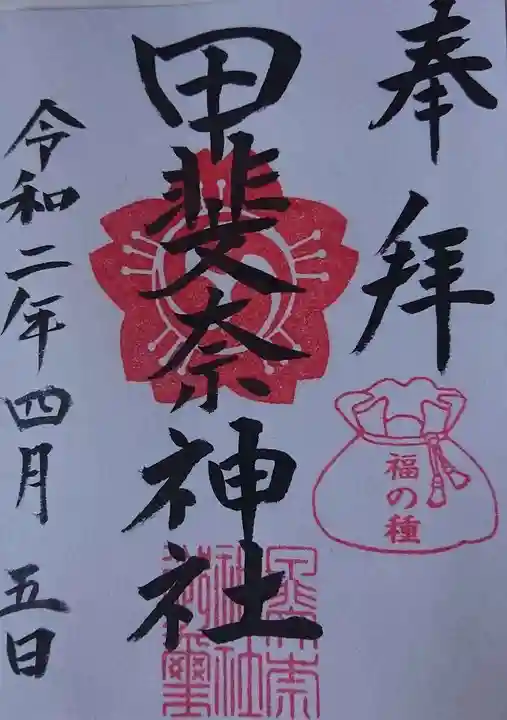 奉拝
福の種
甲斐奈神社
令和二年四月五日